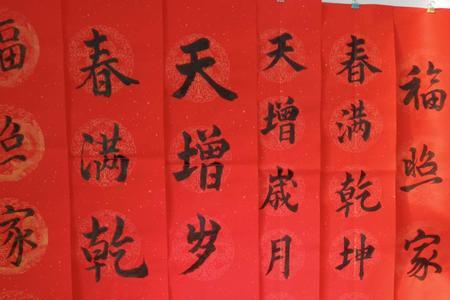 福照家
春满乾
天增岁
天增歳月
春满乾坤
福照家